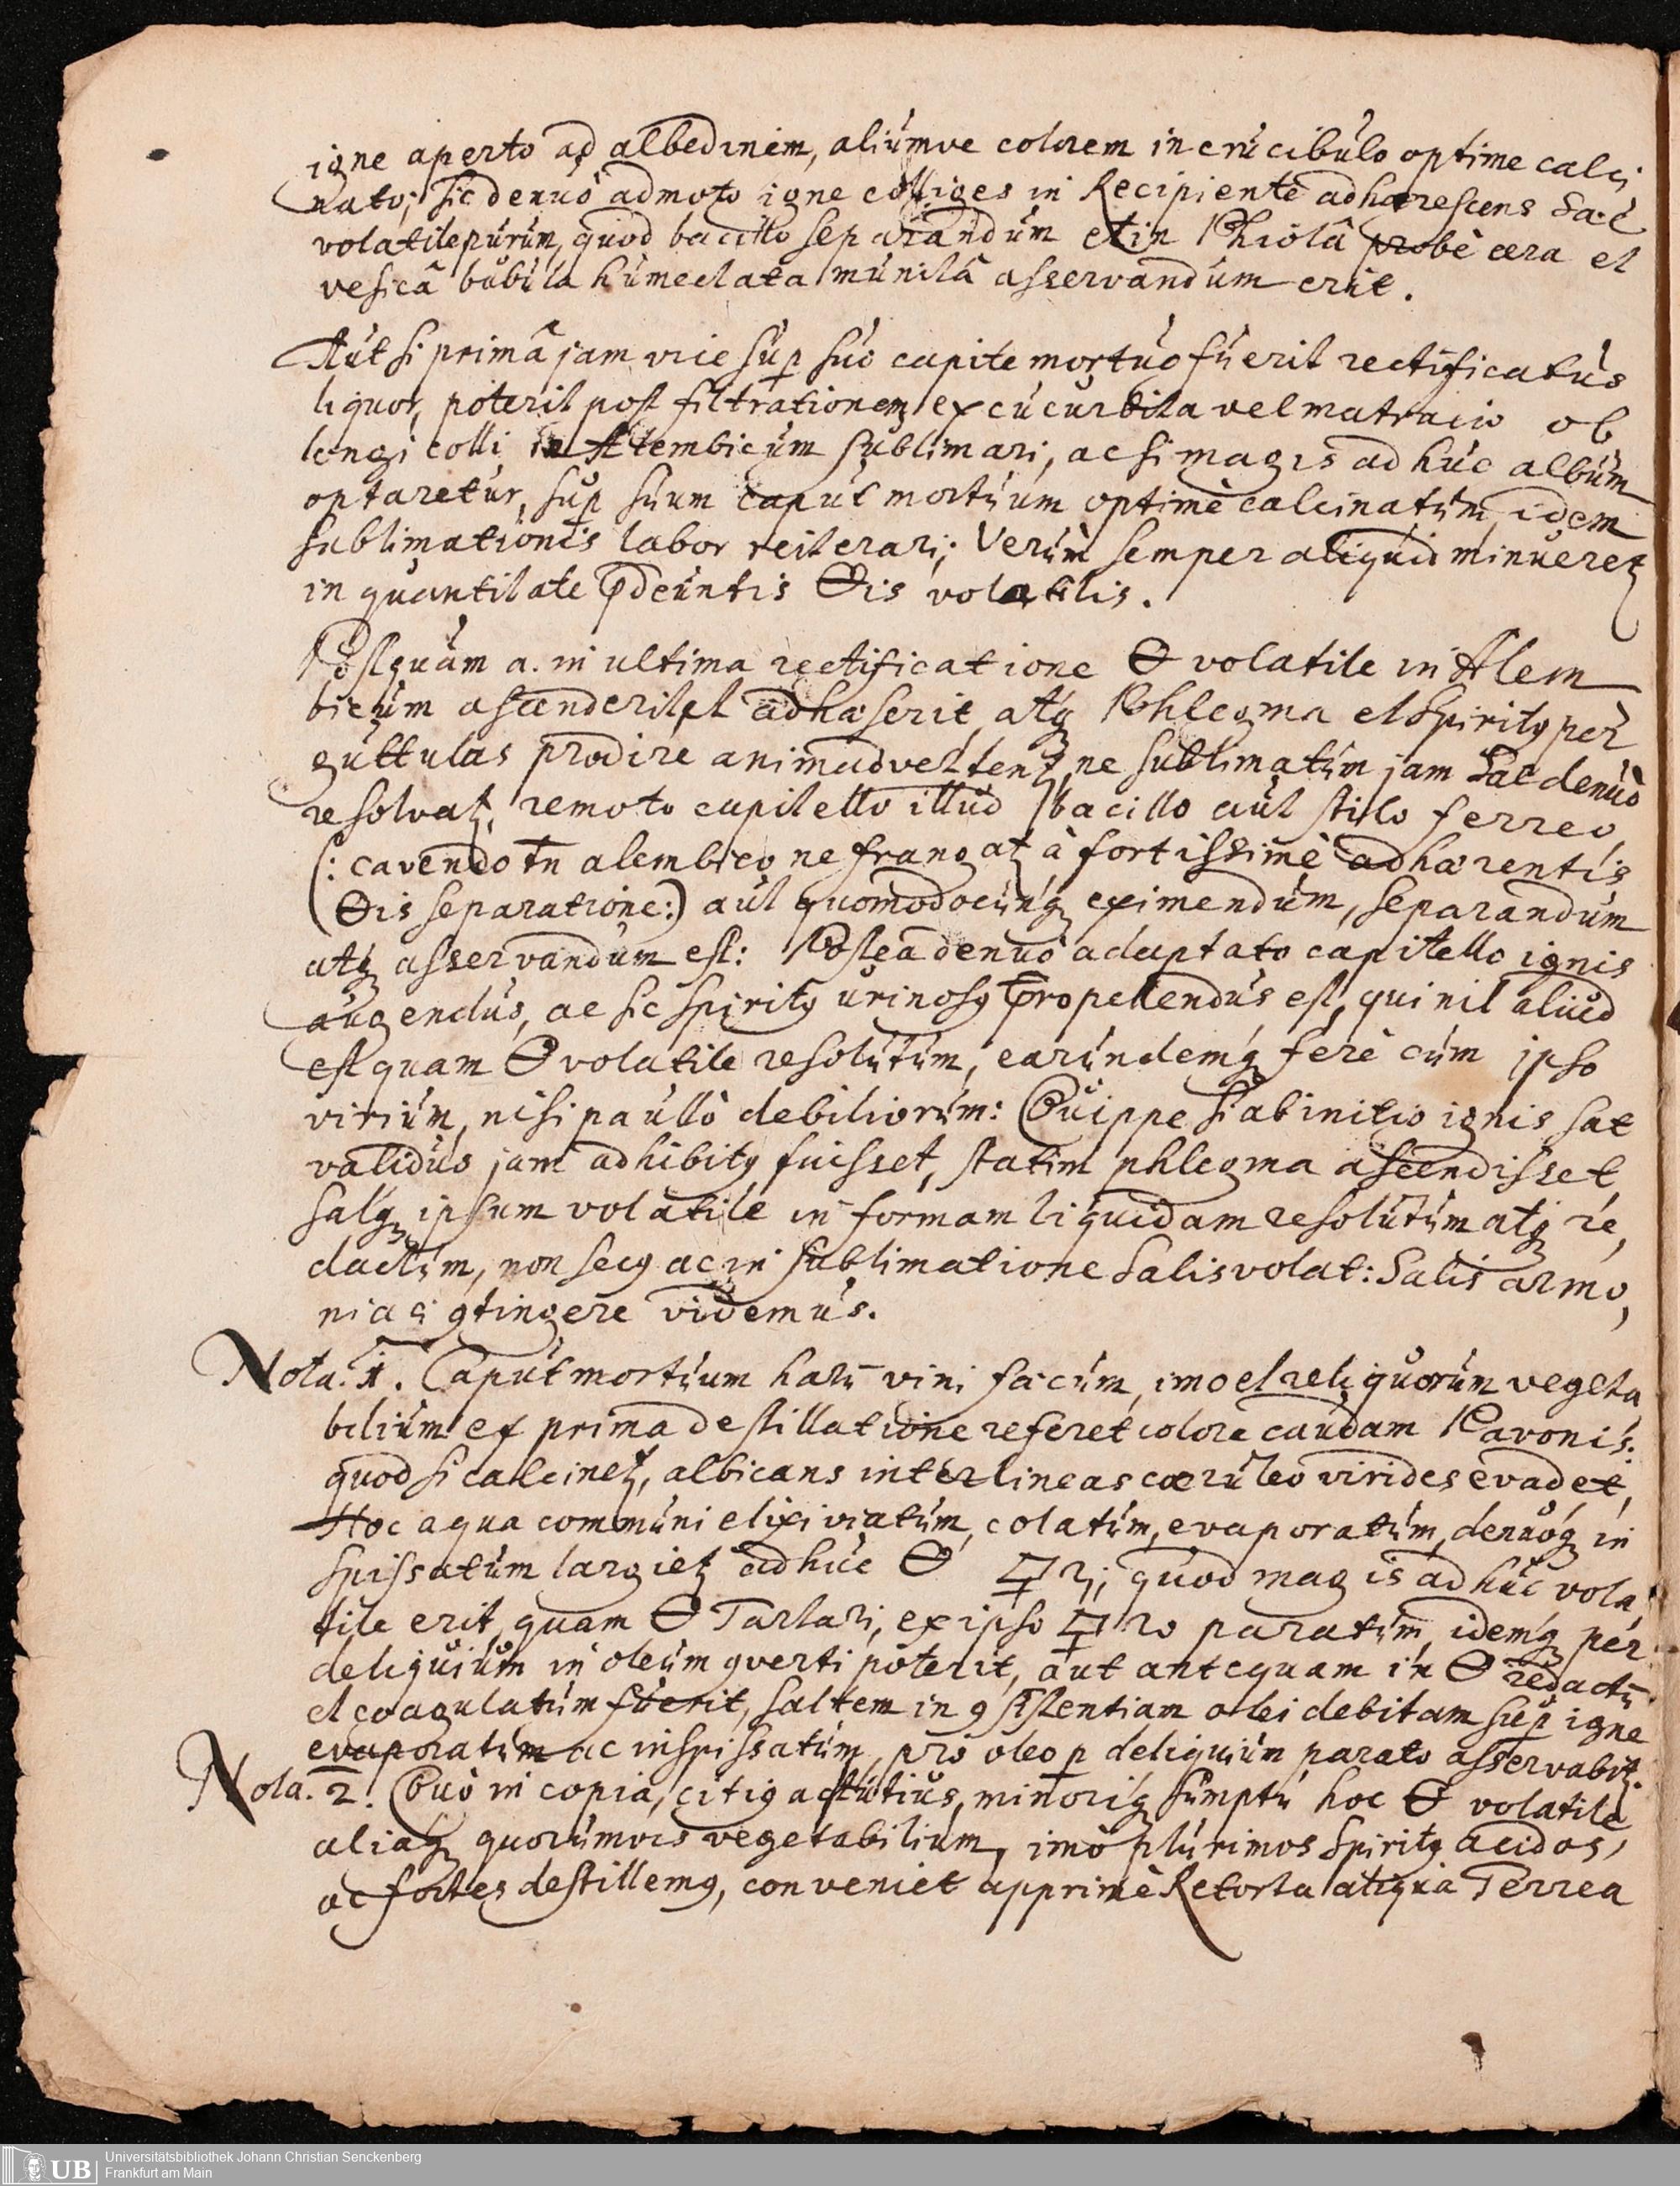 igne aperto ad albedinem, aliúmve colorem in crúcibúlo optime calci
nato; sic denúò admoto igne colliges in Recipiente adhærescens Sal
volatile púrúm, qúod bacillo separandúm et in Phiolâ probè cera et
vesicâ búbúla húmectata múnitâ asservandúm erit.
Aút si primâ jam vice súp súo capite mortúo fúerit rectificatús
liqúor, poterit post filtrationem ex cúcúrbita vel matracio ob
longi colli in Alembicúm súblimari, ac si magis adhúc albúm
optaretúr, súp súum capút mortúum optimè calcinatúm, idem
sublimationis labor reiterari; Verúm semper aliqúid minúeretꝫ
in qúantitate ꝓdeúntis 🜔is volatilis.
Postqúam a. in ultima rectificatione 🜔 volatile in Alem
bicúm ascenderit, et adhæserit, atqꝫ Phlegma et Spiritꝰ per
gúttulas prodire animadvertentꝫ, ne sublimatúm jam Sal denúò
resolvatꝫ, remoto capitello illúd bacillo aút stilo ferreo
(: cavendo tn̄ alembico ne frangatꝫ à fortissimè adhærentis
🜔is separatione:) aút qúomodocúnqꝫ eximendúm, separandúm
atqꝫ asservandum est: Postea denúò adaptato capitello ignis
aúgendús, ac sic spiritꝰ úrinosꝰ propellendús est, qui nil aliúd
est quam 🜔 volatile resolútúm, earúndemqꝫ ferè cúm ipso
viriúm, nisi paúllò debiliorúm: Qúippe si ab initio ignis sat
validús jam adhibitꝰ fuisset, statim phlegma ascendisset,
salqꝫ ipsum volatile in formam liqúidam resolútúm atqꝫ re,
dactúm, non secꝰ ac in súblimatione Salis volat: Salis armo,
niaci ꝯtingere videmús.
Nota. 1. Capút mortúum harū vini fæcúm, imo et reliqúorúm vegeta
biliúm ex prima destillatione referet colore caúdam Pavonis:
qúod si calcinetꝫ, albicans inter lineas cœrúleo virides evadet,
Hoc aqua commúni elixiviatúm, colatúm, evaporatúm, denúóqꝫ in
spissatúm largietꝫ adhúc 🜔 🜿ri; qúod magis adhúc vola,
tile erit, quam 🜔 Tartari, ex ipso 🜿ro paratúm, idemqꝫ per
deliqúiúm in oleúm ꝯverti poterit, aút antequam in 🜔 redactū
et coagulatúm fúerit, saltem in ꝯsistentiam olei debitam súp igne
evaporatúm ac inspissatúm, pro oleo p deliqúiúm parato asservabitꝫ.
Nota. 2. Qúò in copia, citiꝰ ac tútiús, minoriqꝫ súmptú hoc 🜔 volatile
aliaqꝫ quorúmvis vegetabilium, imò plúrimos Spiritꝰ acidos,
ac fortes destillemꝰ, conveniet apprimè Retorta aliqúa Terrea
Universitätsbibliothek Johann Christian Senckenberg
Frankfurt am Main
UB